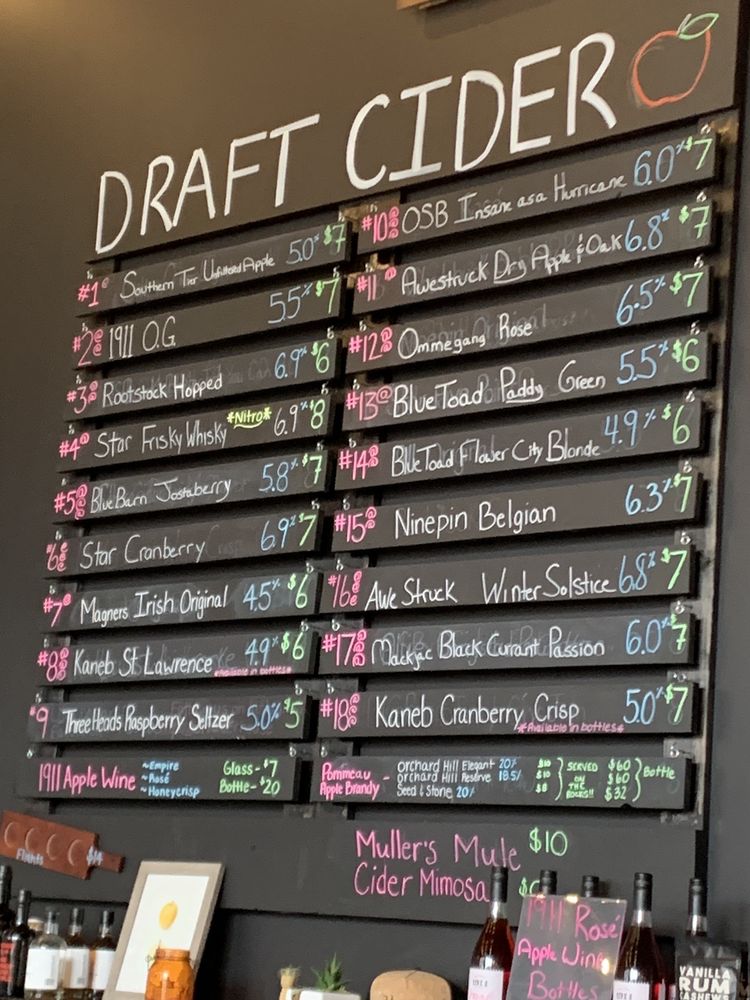 DRAFT CIDER
#1 Southern Tier Unfiltered Apple 5.0% $7
#2 1911 O.G. 5.5% $7
#3 Rootstock Hopped 6.9% $6
#4 Star Frisky Whisky *Nitro* 6.9% $8
#5 Blue Barn Jostaberry 5.8% $7
#6 Star Cranberry 6.9% $7
#7 Magners Irish Original 4.5% $6
#8 Kaneb St. Lawrence 4.9% $6
*Available in bottles*
#9 Three Heads Raspberry Seltzer 5.0% $5
1911 Apple Wine
~Empire
~Rosé
~Honeycrisp
Glass- $7
Bottle- $20
#10 OSB Insane as a Hurricane 6.0% $7
#11 Awestruck Dry Apple & Oak 6.8% $7
#12 Ommegang Rosé 6.5% $7
#13 Blue Toad Paddy Green 5.5% $6
#14 Blue Toad Flower City Blonde 4.9% $6
#15 Ninepin Belgian 6.3% $7
#16 Awe Struck Winter Solstice 6.8% $7
#17 Mackjac Black Currant Passion 6.0% $7
#18 Kaneb Cranberry Crisp 5.0% $7
*Available in bottles*
Pommeau Apple Brandy -
Orchard Hill Elegant 20% $10
Orchard Hill Reserve 18.5% $10
Seed & Stone 20% $8
SERVED ON THE ROCKS!!
$60
$60
$32
Bottle
Muller's Mule $10
Cider Mimosa
Flights $14
1911 Rosé
Apple Wine
Bottles
VANILLA
RUM
CASHEWS